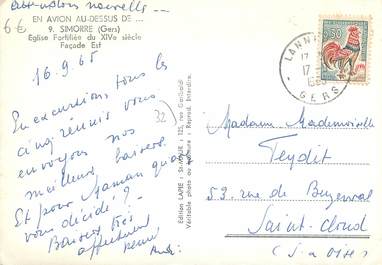 nouvelle --
6€
EN AVION AU-DESSUS DE ...
9. SIMORRE (Gers)
Eglise Fortifiée du XIVe siècle
Façade Est
16.9.65
En excursion tous les
cinq réunis vous
envoyons nos
meilleurs baisers
Et pour Maman quoi
vous décide ?
Baisers très
affectueux
André
32
Edition LAPIE : SAINT-MAUR : 125, rue Garibaldi
Véritable photo au bromure : Reprod. interdite.
17
GERS
0,30
Madame Mademoiselle
Teydit
59 rue de Buzenval
Saint-Cloud
(S-et-Oise)